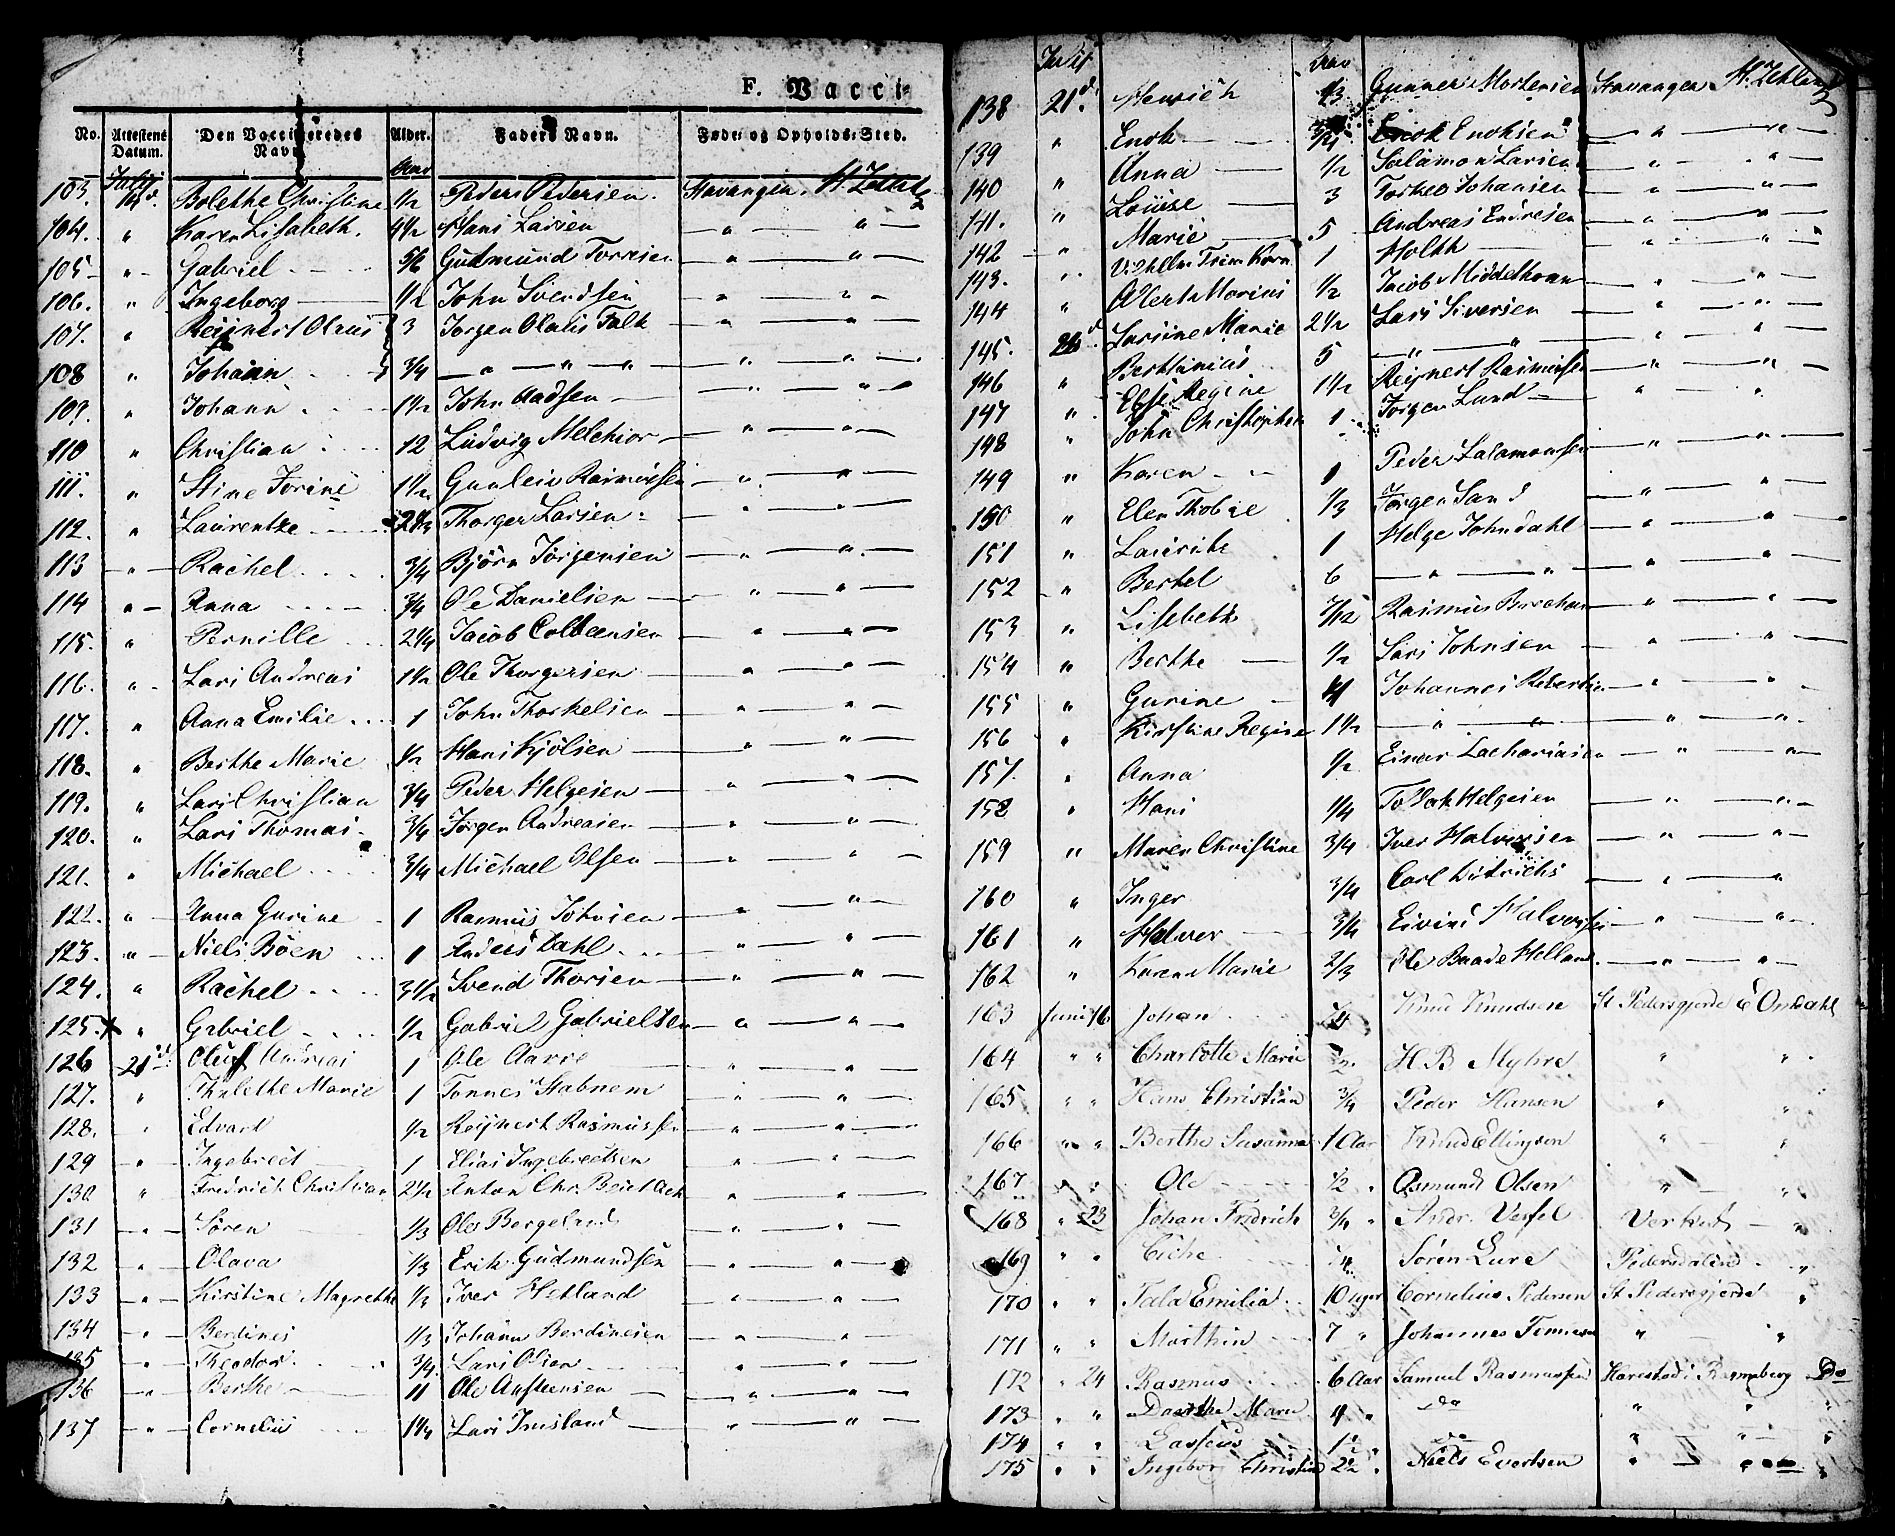 F. Vacci-
No. Attestens Datum. Den Vaccineredes Navn. Alder. Faders Navn. Føde- og Opholds-Sted.
July Aar
103. 14d. Bolethe Christine 1/2 Peder Pedersen. Stavanger. St.
104. " Karen Lisabeth. 4 1/2 Hans Larsen — " — " —
105 - " - Gabriel 5/6 Gudmund — " — " —
106. " Ingeborg 1/2 John Svendsen — " — " —
107. " Reijnert Olaus 3 Jørgen Olaus Falk — " — " —
108 " Johann 3/4 — " — " — " — " — " —
109. " Johann 1 1/2 John Aadsen — " — " —
110 " Christian 12 Ludvig Melchior — " — " —
111. " Stine Jorine 1 1/2 Gunleiv Rasmusen — " — " —
112. " Laurentze Thorger Larsen — " — " —
113 - " - Rachel 3/4 Bjørn Jørgensen — " — " —
114 " - Anna 3/4 Ole Danielsen — " — " —
115. " Pernille 2 1/4 Jacob — " — " —
116. " - Lars Andreas 1 1/2 Ole Thorgersen — " — " —
117. " Anna Emilie 1 John Thorkelsen — " — " —
118. " Berthe Marie 1/2 Hans Kjølsen — " — " —
119. " Lars Christian 3/4 Peder Helgesen — " — " —
120. " Lars Thomas 3/4 Jørgen Andreasen — " — " —
121. " Michael 3/4 Michael Olsen — " — " —
122. " - Anna Gurine 1 Rasmus Johnsen — " — " —
123. - " - Niels Böen 1 Anders Dahl — " — " —
124. " Rachel 3 1/2 Svend Thorsen — " — " —
125. " Gabriel 1/2 Gabriel Gabrielsen — " — " —
126 21d Oluf Andreas 1 Ole — " — " —
127. " Thalethe Marie 1 Tonnes — " — " —
128. " Edvart 1/2 Reijnert Rasmussen — " — " —
129 - " - Ingebrect 1 Elias Ingebrectsen — " — " —
130 " Fredrich Christian 2 1/2 Anton Chr. — " — " —
131 - " - Søren 1/3 Ole Bergeland — " — " —
132 - " - Olava 1/3 Erik Gudmundsen — " — " —
133 - " - Kirstine Magrethe 1/3 Iver Hetland — " — " —
134 - " - Berdines 1/3 Johann Berdinesen — " — " —
135 - " - Theodor 3/4 Lars Olsen — " — " —
136 - " - Berthe 11 Ole — " — " —
137 - " - Cornelius 1 1/4 Lars — " — " —
Aar
138 21d. Henrich Gunner Mortensen Stavanger St.
139 " Enok 3/4 Enok Enoksen — " — " —
140 " Anna 1/2 Salamon Larsen — " — " —
141. " Louise 3 Torkel Johansen — " — " —
142 " Marie 5 Andreas Endresen — " — " —
143. " Vilhelm 1 Holth — " — " —
144 " Marius 1/2 Jacob Middelthoen — " — " —
145. Marie 2 1/2 Lars Siversen — " — " —
146 " Berthinius 5 — " — " — " — " —
147 " Else Regine 1 1/2 Reijnert Rasmusen — " — " —
148 " John Christopher 1 Jørgen Lund — " — " —
149 " Karen 1 Peder Salamonsen — " — " —
150 " Elen 1/3 Jørgen — " — " —
151 " 1 Helge Johndahl — " — " —
152 - " Berthel 6 — " — " — " — " —
153 " Lisebeth 7/12 Rasmus — " — " —
154 " Berthe 1/2 Lars Johnsen — " — " —
155 " Gurine 4 Johannes — " — " —
156 " Kirstine Regine 1 1/2 — " — " — " — " —
157. " Anna 1/2 Einar Zachariasen — " — " —
158 " Hans 1/4 Helgesen — " — " —
159 " Maren Christine 3/4 Iver Halvorsen — " — " —
160 " Inger 3/4 Carl — " — " —
161 " Halvor 3/4 Eivind Halvorsen — " — " —
162 " Karen Marie 2/3 Ole Baade Helland. — " — " —
163 Juni 16 Johan Knud Knudsen St Pedersgjerde
164 " " Charlotte Marie 1/2 H. B. Myhre " "
165 " " Hans Christian 3/4 Peder Hansen " "
166 " " Berthe Susanna 1 Aar Knud Ellingsen " "
167 " " Ole 1/2 " Asmund Olsen " "
168 " 23 Johan Fredrich 3/4 " Andr. "
169 " " 1/4 Søren Lura "
170 " " Tala Emilia 10 uger Cornelius Pedersen St Pedersgjerde "
171 " " Marthin 7 " Johannes " "
172 " 24 Rasmus 6 Aar Samuel Rasmussen Harestad i Do
173 " " Dorthe Marie 4 " do " " "
174 " " 1 " do " " "
175 " " Ingeborg Christine Niels Evertsen " " "